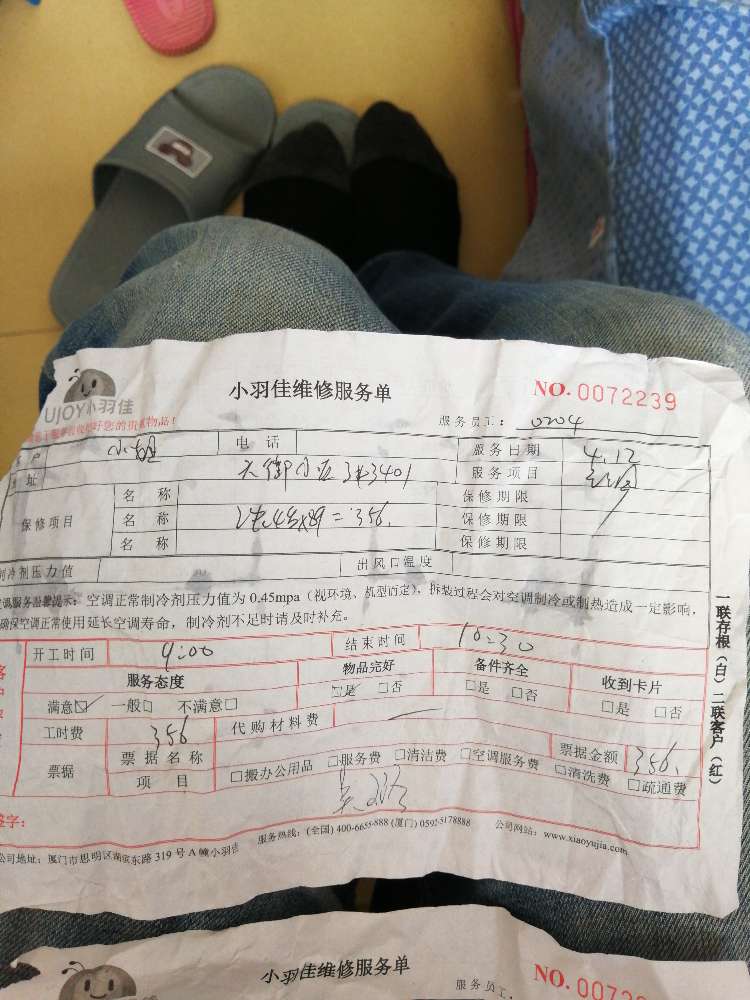 UJOY小羽佳
小羽佳维修服务单
NO. 0072239
服务员工: 0204
户
小姐
电 话
服务日期
4.12
址
天御小区3#3401
服务项目
保修项目
名 称
保修期限
名 称
洗4台×89=356.
保修期限
名 称
保修期限
制冷剂压力值
出风口温度
调服务温馨提示: 空调正常制冷剂压力值为 0.45mpa (视环境、机型而定), 拆装过程会对空调制冷或制热造成一定影响,
确保空调正常使用延长空调寿命, 制冷剂不足时请及时补充。
开工时间
9:00
结束时间
10:30
服务态度
物品完好
备件齐全
收到卡片
满意☑ 一般□ 不满意□
☑是 □否
□是 □否
□是 □否
工时费
356
代购材料费
票据
票据名称
□搬办公用品 □服务费 □清洁费 □空调服务费 □清洗费 □疏通费
项 目
票据金额
356.
签字:
公司地址: 厦门市思明区湖滨东路 319 号 A 幢小羽佳
服务热线: (全国) 400-6655-888 (厦门) 0592-5178888
公司网站: www.xiaoyujia.com
一联存根(白) 二联客户(红)
小羽佳维修服务单
服务员工:
NO. 0072